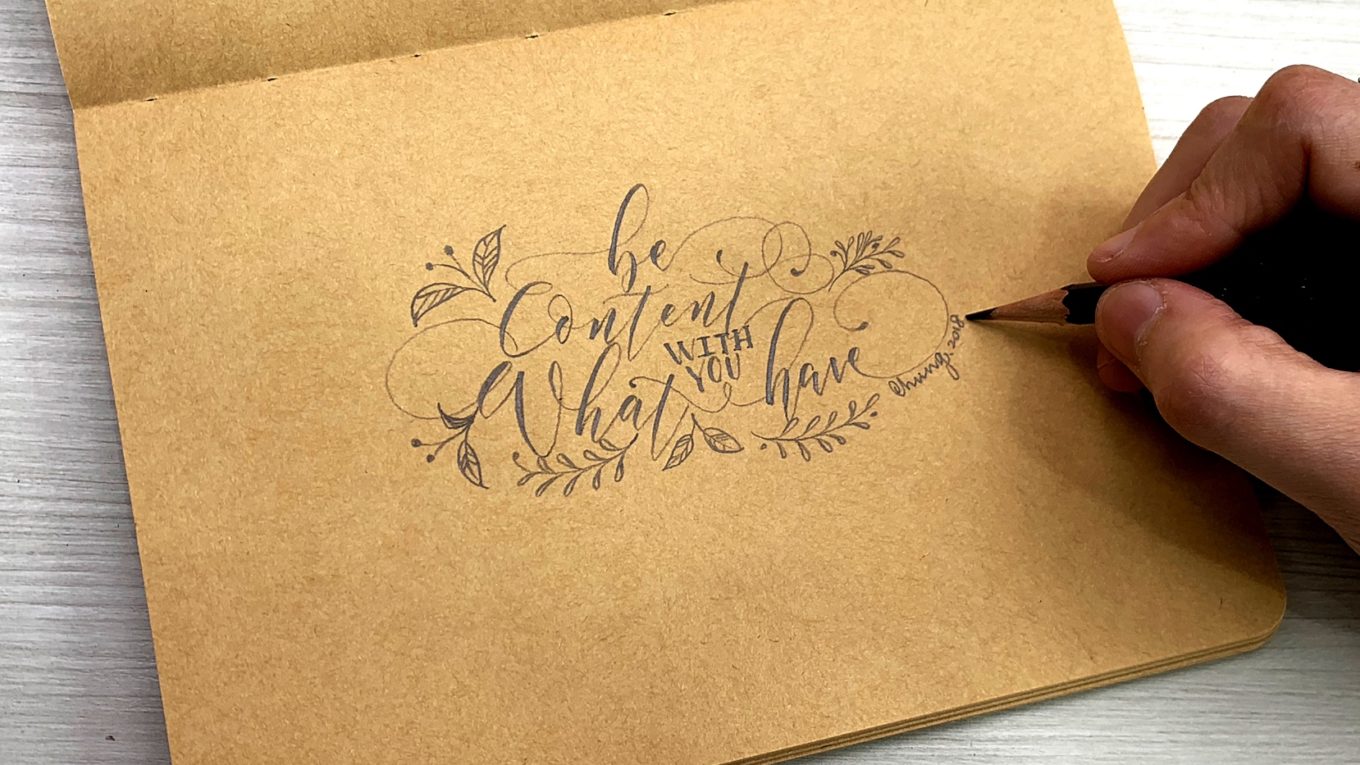 be
Content
WITH
What YOU have
2018